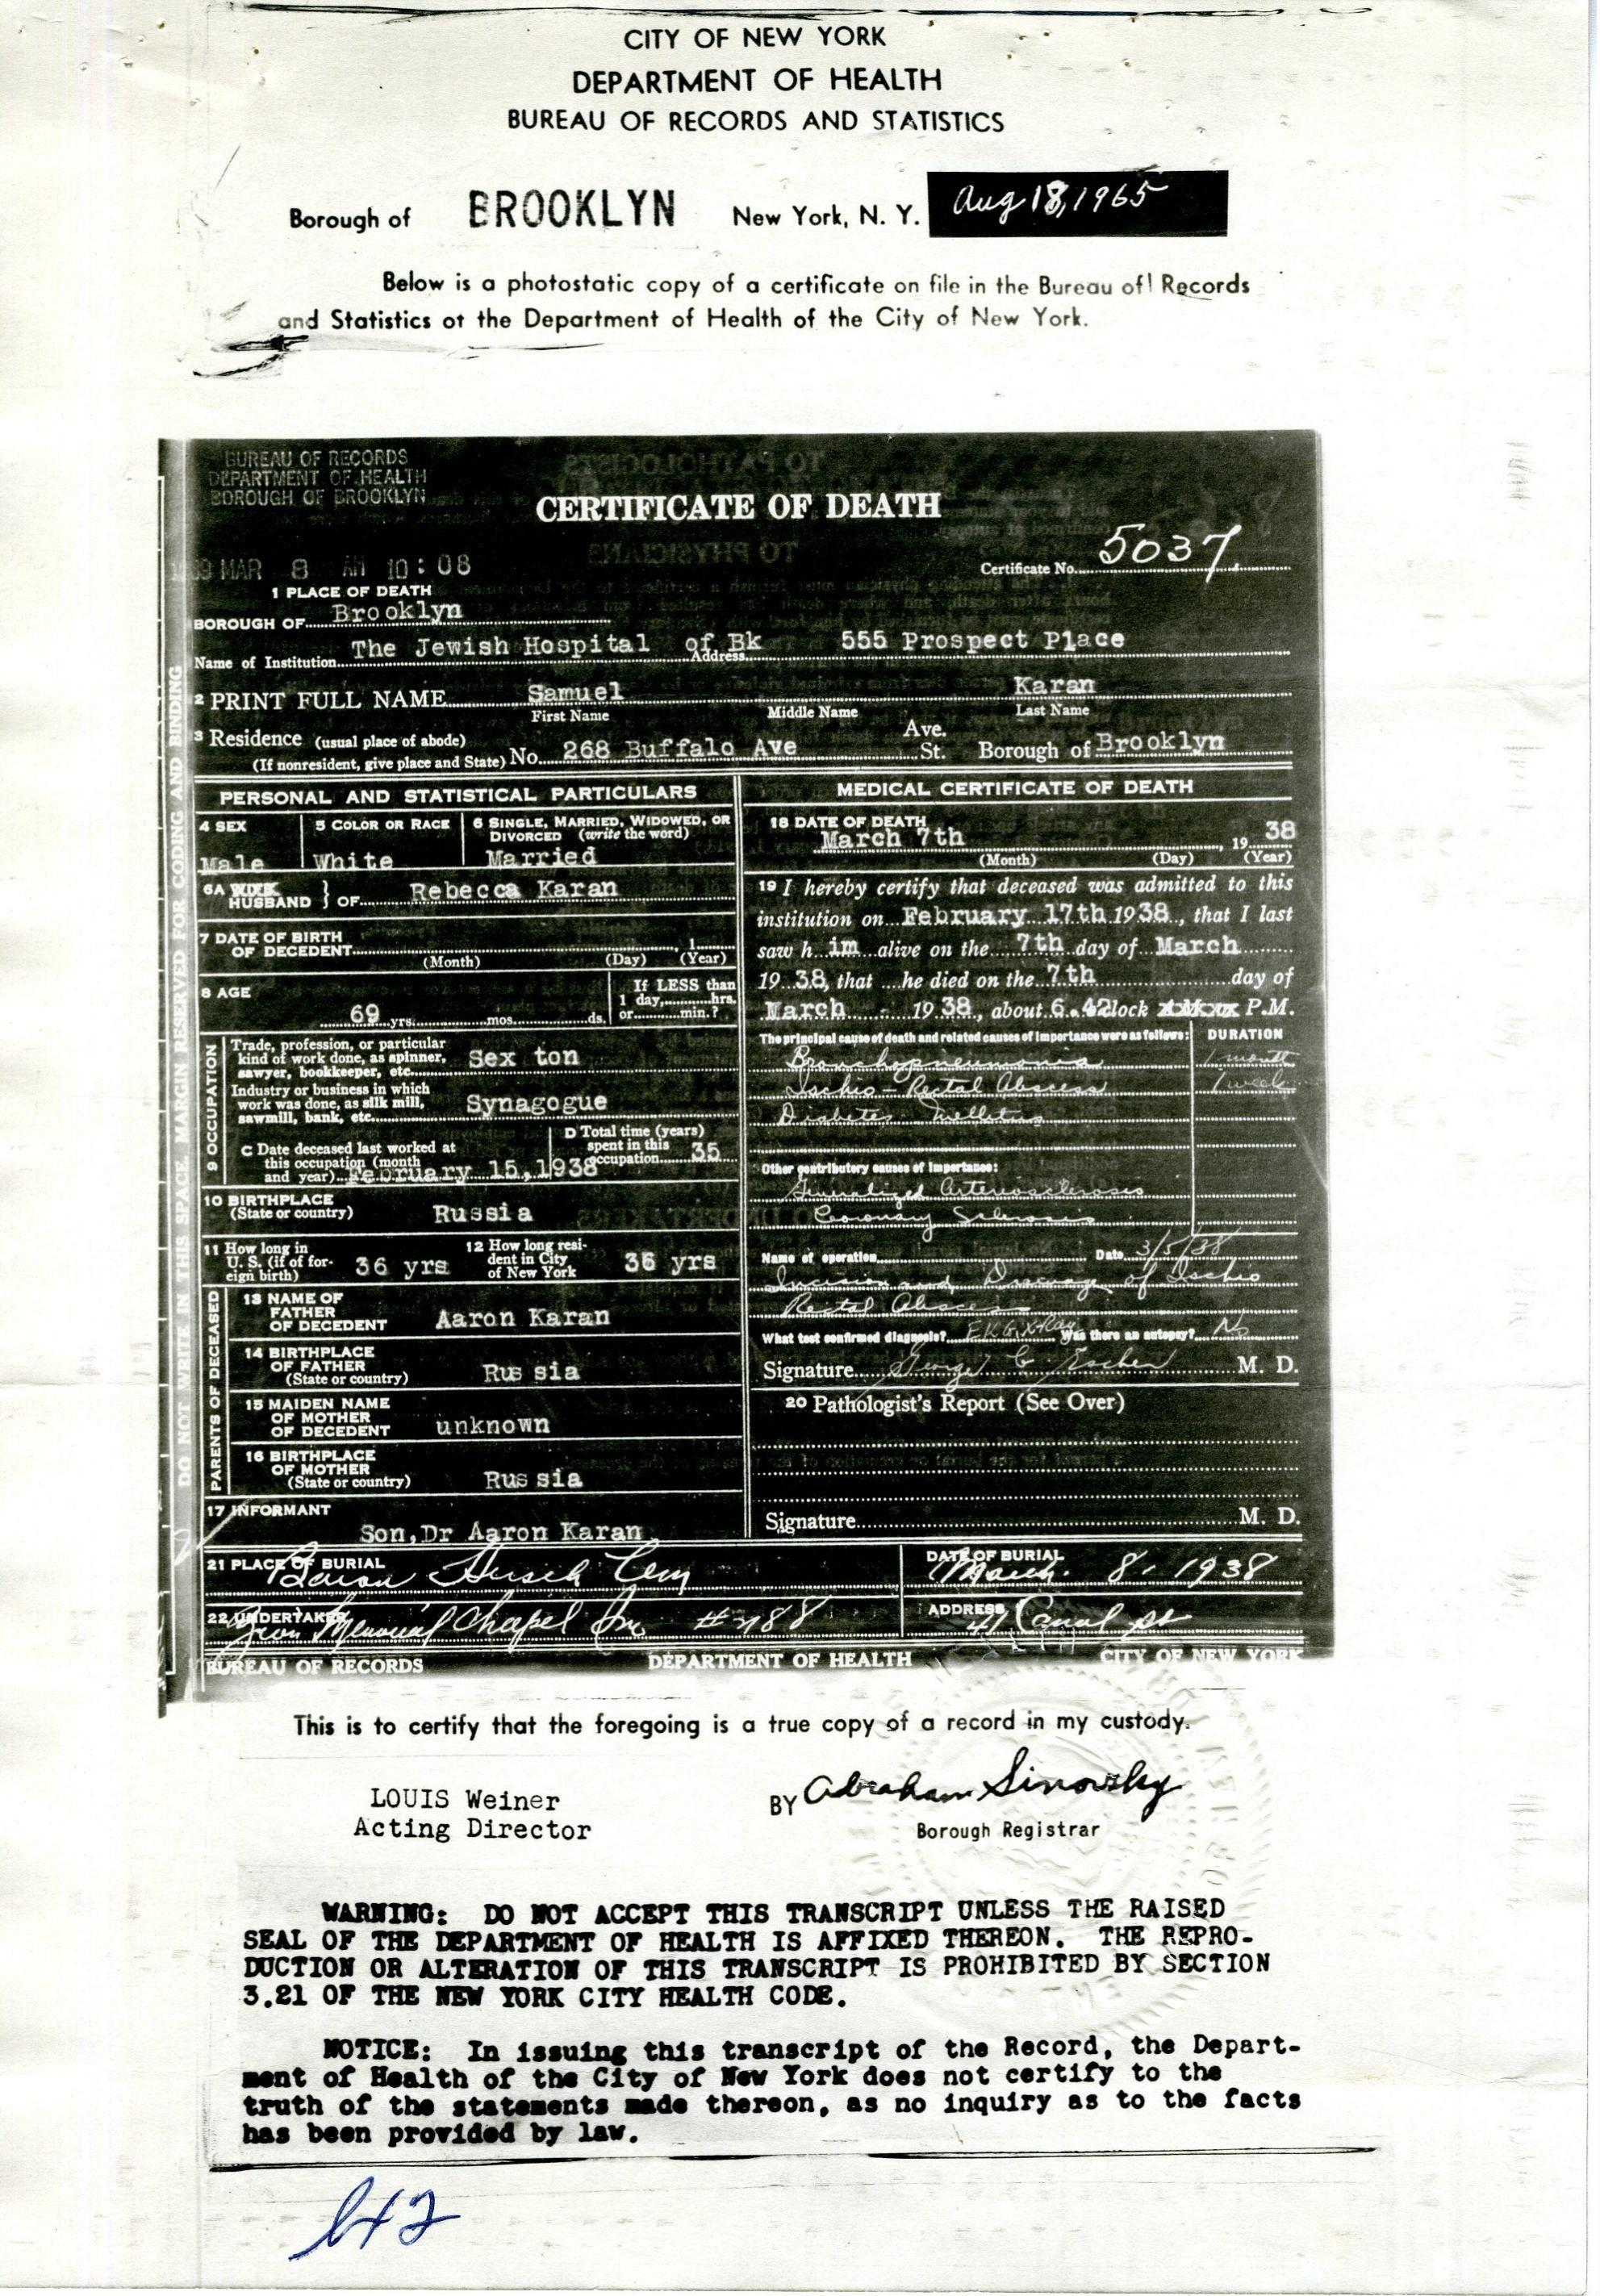 CITY OF NEW YORK
DEPARTMENT OF HEALTH
BUREAU OF RECORDS AND STATISTICS
Borough of BROOKLYN New York, N. Y. Aug 18, 1965
Below is a photostatic copy of a certificate on file in the Bureau of Records
and Statistics of the Department of Health of the City of New York.
BUREAU OF RECORDS
DEPARTMENT OF HEALTH
BOROUGH OF BROOKLYN
CERTIFICATE OF DEATH
MAR 8 AM 10:08
Certificate No. 5037
1 PLACE OF DEATH
BOROUGH OF Brooklyn
Name of Institution The Jewish Hospital of Bk Address 555 Prospect Place
2 PRINT FULL NAME Samuel Karan
First Name Middle Name Last Name
3 Residence (usual place of abode) Ave.
(If nonresident, give place and State) No. 268 Buffalo Ave St. Borough of Brooklyn
DO NOT WRITE IN THIS SPACE, MARGIN RESERVED FOR CODING AND BINDING
PERSONAL AND STATISTICAL PARTICULARS
4 SEX
Male
5 COLOR OR RACE
White
6 SINGLE, MARRIED, WIDOWED, OR
DIVORCED (write the word)
Married
6A WIFE
HUSBAND } OF Rebecca Karan
7 DATE OF BIRTH
OF DECEDENT , 1
(Month) (Day) (Year)
8 AGE
69 yrs. mos. ds.
If LESS than
1 day, hrs.
or min.?
9 OCCUPATION
Trade, profession, or particular
kind of work done, as spinner,
sawyer, bookkeeper, etc. Sex ton
Industry or business in which
work was done, as silk mill,
sawmill, bank, etc. Synagogue
C Date deceased last worked at
this occupation (month
and year) February 15,1938
D Total time (years)
spent in this
occupation 35
10 BIRTHPLACE
(State or country) Russia
11 How long in
U. S. (if of for-
eign birth) 36 yrs
12 How long resi-
dent in City
of New York 36 yrs
PARENTS OF DECEASED
13 NAME OF
FATHER
OF DECEDENT Aaron Karan
14 BIRTHPLACE
OF FATHER
(State or country) Rus sia
15 MAIDEN NAME
OF MOTHER
OF DECEDENT unknown
16 BIRTHPLACE
OF MOTHER
(State or country) Rus sia
17 INFORMANT
Son,Dr Aaron Karan
MEDICAL CERTIFICATE OF DEATH
18 DATE OF DEATH
March 7th , 19 38
(Month) (Day) (Year)
19 I hereby certify that deceased was admitted to this
institution on February 17th 1938, that I last
saw h im alive on the 7th day of March
19 38, that he died on the 7th day of
March 19 38, about 6.42lock P.M.
The principal cause of death and related causes of importance were as follows: DURATION
Bronchopneumonia 1 month
Ischio-Rectal Abscess 1 week
Diabetes Mellitus
Other contributory causes of importance:
Generalized Arteriosclerosis
Coronary Sclerosis
Name of operation Date 3/5/38
Incision and Drainage of Ischio
Rectal Abscess
What test confirmed diagnosis? EKG, X-Ray Was there an autopsy? No
Signature George M. D.
20 Pathologist's Report (See Over)
Signature M. D.
21 PLACE OF BURIAL Baron Hirsch Cem
DATE OF BURIAL March 8, 1938
22 UNDERTAKER Zion Memorial Chapel Inc #
ADDRESS 41 Canal St
BUREAU OF RECORDS DEPARTMENT OF HEALTH CITY OF NEW YORK
This is to certify that the foregoing is a true copy of a record in my custody.
LOUIS Weiner
Acting Director
BY Abraham Sinovsky
Borough Registrar
WARNING: DO NOT ACCEPT THIS TRANSCRIPT UNLESS THE RAISED
SEAL OF THE DEPARTMENT OF HEALTH IS AFFIXED THEREON. THE REPRO-
DUCTION OR ALTERATION OF THIS TRANSCRIPT IS PROHIBITED BY SECTION
3.21 OF THE NEW YORK CITY HEALTH CODE.
NOTICE: In issuing this transcript of the Record, the Depart-
ment of Health of the City of New York does not certify to the
truth of the statements made thereon, as no inquiry as to the facts
has been provided by law.